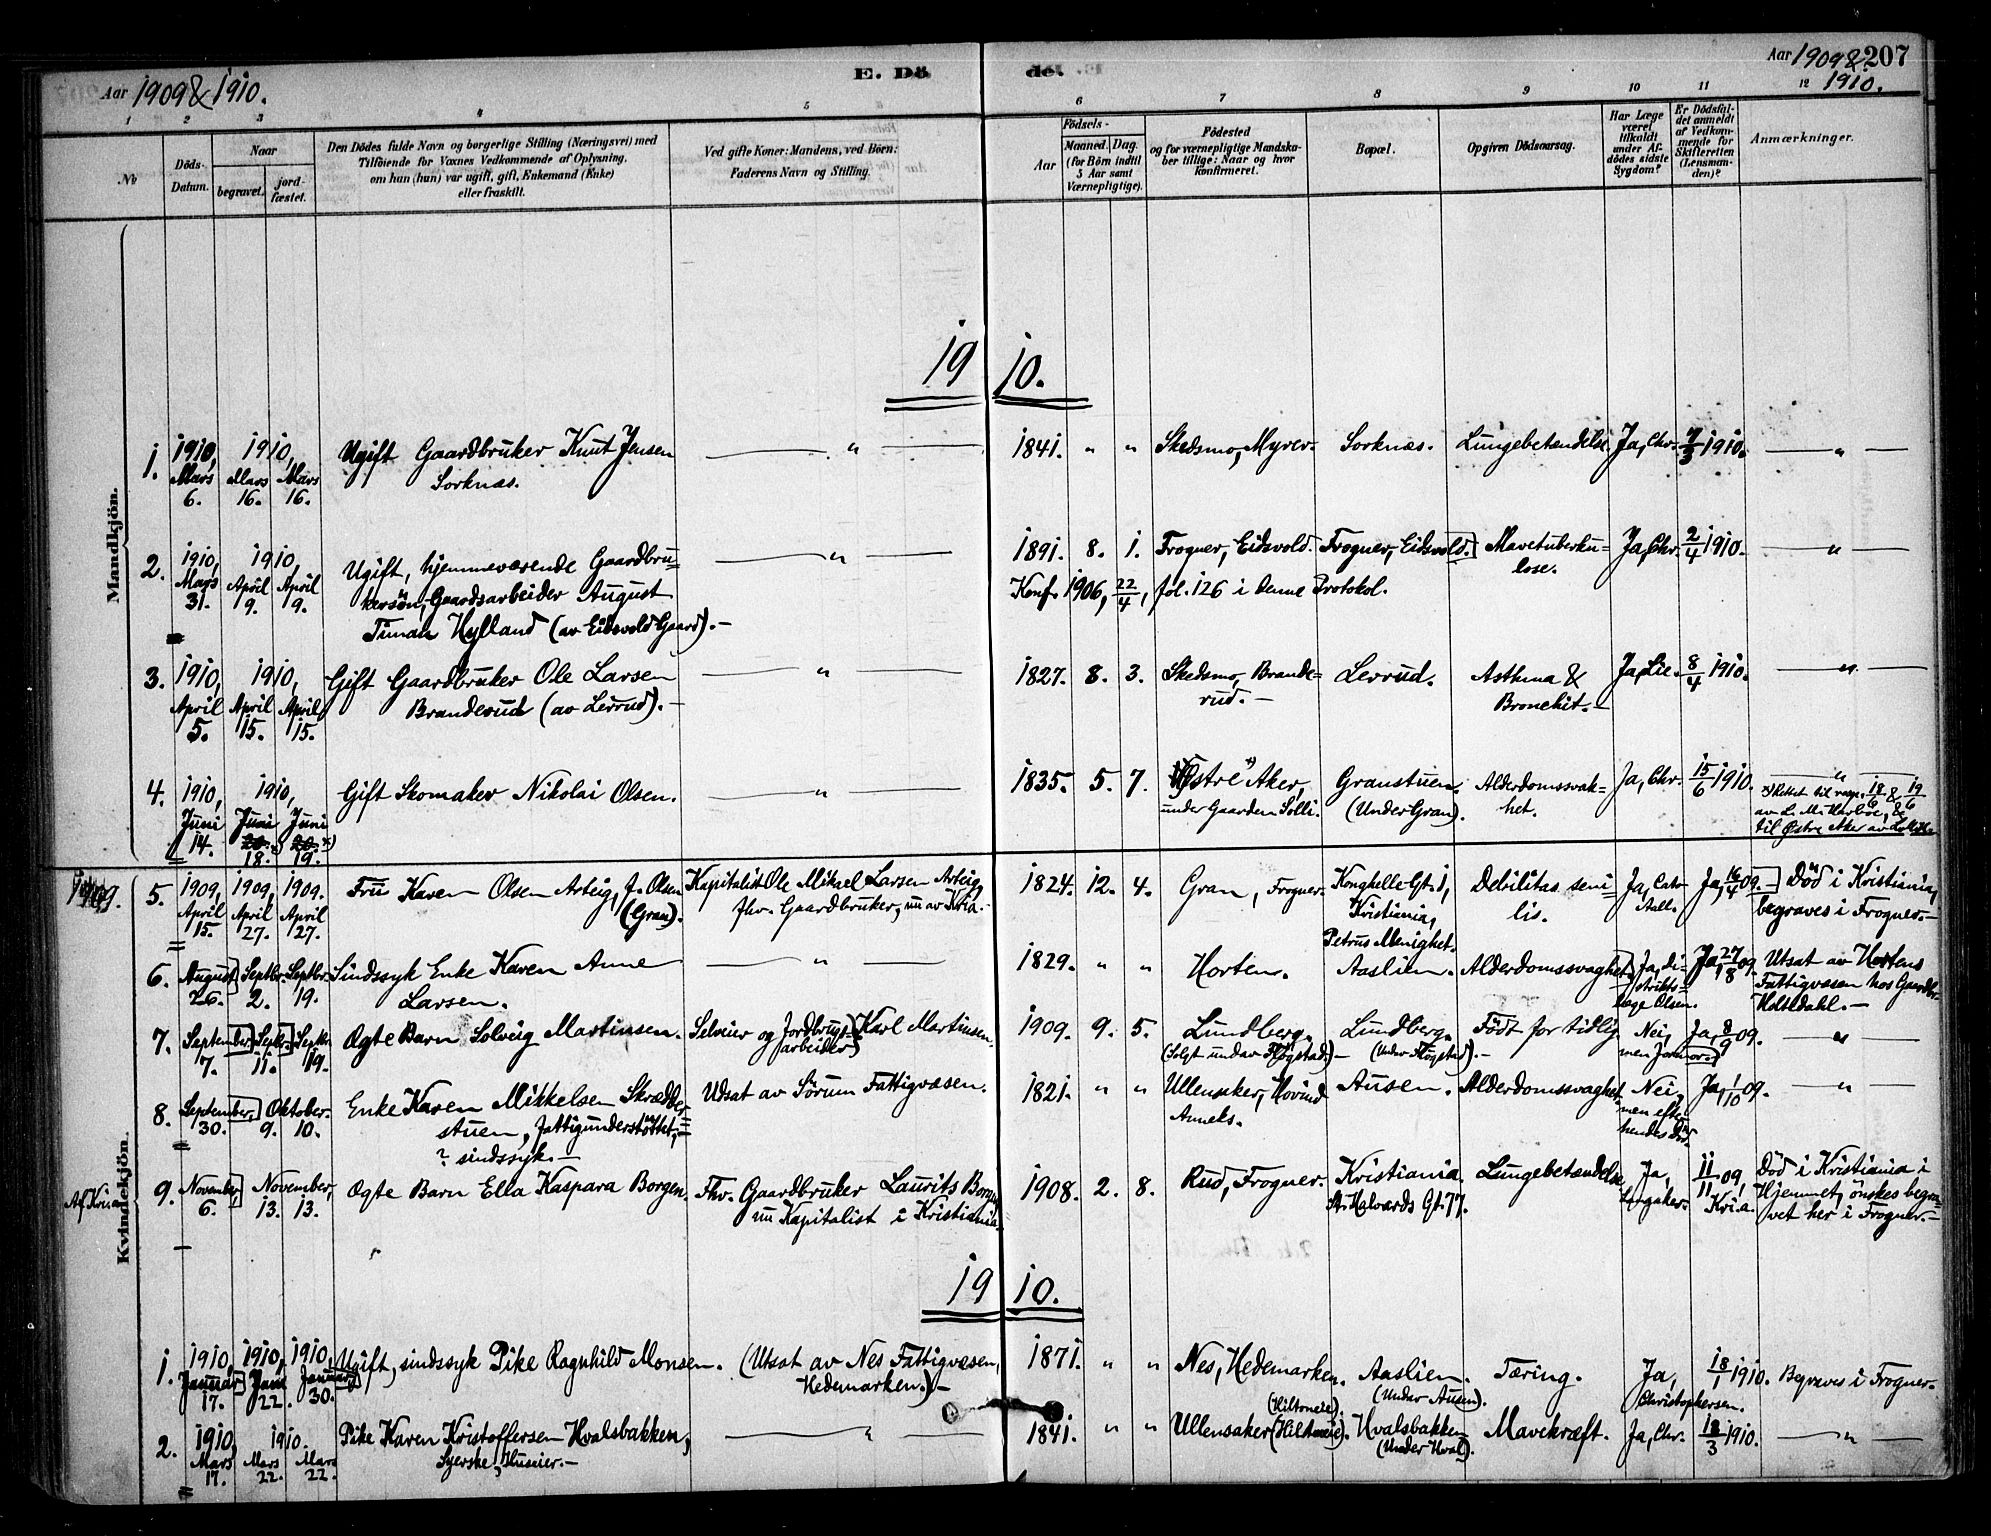 Aar 1909 & 1910.
E. Döde.
Aar 1909 & 1910. 207
1 2 3 4 5 6 7 8 9 10 11 12
No
Döds-Datum.
Naar
begravet.
jordfæstet.
Den Dödes fulde Navn og borgerlige Stilling (Næringsvei) med
Tilföiende for Voxnes Vedkommende af Oplysning,
om han (hun) var ugift, gift, Enkemand (Enke)
eller fraskilt.
Ved gifte Koner: Mandens, ved Börn:
Faderens Navn og Stilling.
Födsels-
Aar
Maaned. Dag.
(for Börn indtil
5 Aar samt
Værnepligtige).
Födested
og for værnepligtige Mandska-
ber tillige: Naar og hvor
konfirmeret.
Bopæl.
Opgiven Dödsaarsag.
Har Læge
været
tilkaldt
under Af-
dödes sidste
Sygdom?
Er Dödsfal-
det anmeldt
af Vedkom-
mende for
Skifteretten
(Lensman-
den)?
Anmærkninger.
Mandkjön.
1910.
1. 1910, Mars 6. 1910, Mars 16. Mars 16. Ugift Gaardbruker Knut Jensen
Sorknæs. — " — 1841. " " Skedsmo, Myrer. Sorknæs. Lungebetændelse Ja, Chr. 7/3 1910. — " —
2. 1910, Mars 31. 1910, April 9. April 9. Ugift, hjemmeværende Gaardbru-
kersön, Gaardsarbeider August
Timan Hylland (av Eidsvold Gaard). — " — 1891. 8. 1. Frogner, Eidsvold. Frogner, Eidsvold. Mavetuberku-
lose. Ja, Chr. 2/4 1910. — " —
Konf. 1906, 22/4, fol. 126 i denne Protokol.
3. 1910, April 5. 1910, April 15. April 15. Gift Gaardbruker Ole Larsen
Branderud (av Lerrud). — " — 1827. 8. 3. Skedsmo, Brande-
rud. — Lerrud. Asthma &
Bronchit. — Ja, Lie. 8/4 1910. — " —
4. 1910, Juni 14. 1910, Juni 20. 18. Juni 20. 19. Gift Skomaker Nikolai Olsen. — " — 1835. 5. 7. Østre Aker,
under Gaarden Solli. Granstuen.
(Under Gran). Alderdomssvak-
het. Ja, Chr. 15/6 1910. — " —
18/6 & 19/6
til Østre Aker av
Kvindekjön.
1909. 5. 1909, April 15. 1909, April 27. 1909. April 27. Fru Karen Olsen Arteig, f. Olsen
(Gran). Kapitalist Ole Mikael Larsen Arteig,
fhv. Gaardbruker, nu av Kria. — 1824. 12. 4. Gran, Frogner. Konghelle Gt. 1,
Kristiania,
Petrus Menighet. Debilitas seni-
lis. Ja, Aall. Ja, 16/4 09. Död i Kristiania,
begraves i Frogner. —
6. August 26. Septbr. 2. Septbr. 19. Sindssyk Enke Karen Anne
Larsen. — " — 1829. " " Horten. Aaslien. Alderdomssvaghet Ja, Di-
strikts-
læge Olsen. Ja 27/8 09. Utsat av Hortens
Fattigvæsen hos Gaardbr.
Holtedahl. —
7. September 7. Septr. 11. Septbr. 19. Ægte Barn Solveig Martinsen. Selveier og Jordbrugs-
arbeider Karl Martinsen. 1909. 9. 5. Lundberg.
(Solgt under Flögstad.) — Lundberg.
(Under Flögstad). — Födt for tidlig. Nei,
men Jormor. Ja, 8/9 09. — " —
8. September 30. Oktober 9. 10. Enke Karen Mikkelsen Skrædder-
stuen, fattigunderstöttet, —
? sindssyk. — Utsat av Sörum Fattigvæsen. 1821. " " Ullensaker, Hovind
Anneks. Ausen. Alderdomssvaghet Nei,
men efter
hendes Död. Ja, 1/10 09. — " —
Af Kria. 9. November 6. November, 13. 13. Ægte Barn Ella Kaspara Borgen. Fhv. Gaardbruker Laurits Borgen
nu Kapitalist i Kristiania. 1908. 2. 8. Rud, Frogner. Kristiania.
St. Halvards Gt. 77. Lungebetændelse Ja, 11/11 09, Kria. Död i Kristiania i
Hjemmet, önskes begra-
vet her i Frogner. —
1910.
1. 1910, Januar 17. 1910, Jan. 22. 1910, Januar 30. Ugift, sindssyk Pike Ragnhild Monsen. (Utsat av Nes Fattigvæsen,
Hedemarken.) — 1871. " " Nes, Hedemarken. Aaslien.
(Under Ausen). Tæring. Ja,
Christophersen. 18/1 1910. Begraves i Frogner.
2. 1910, Mars 17. 1910. Mars 22. Mars 22. Pike Karen Kristoffersen Hvalsbakken,
Syerske, Huseier. — — " — 1841. " " (Hiltoneie).
Ullensaker (Hiltoneie). Hvalsbakken
(Under Hval). Mavekræft. Ja, Chr. 18/3 1910. — " —